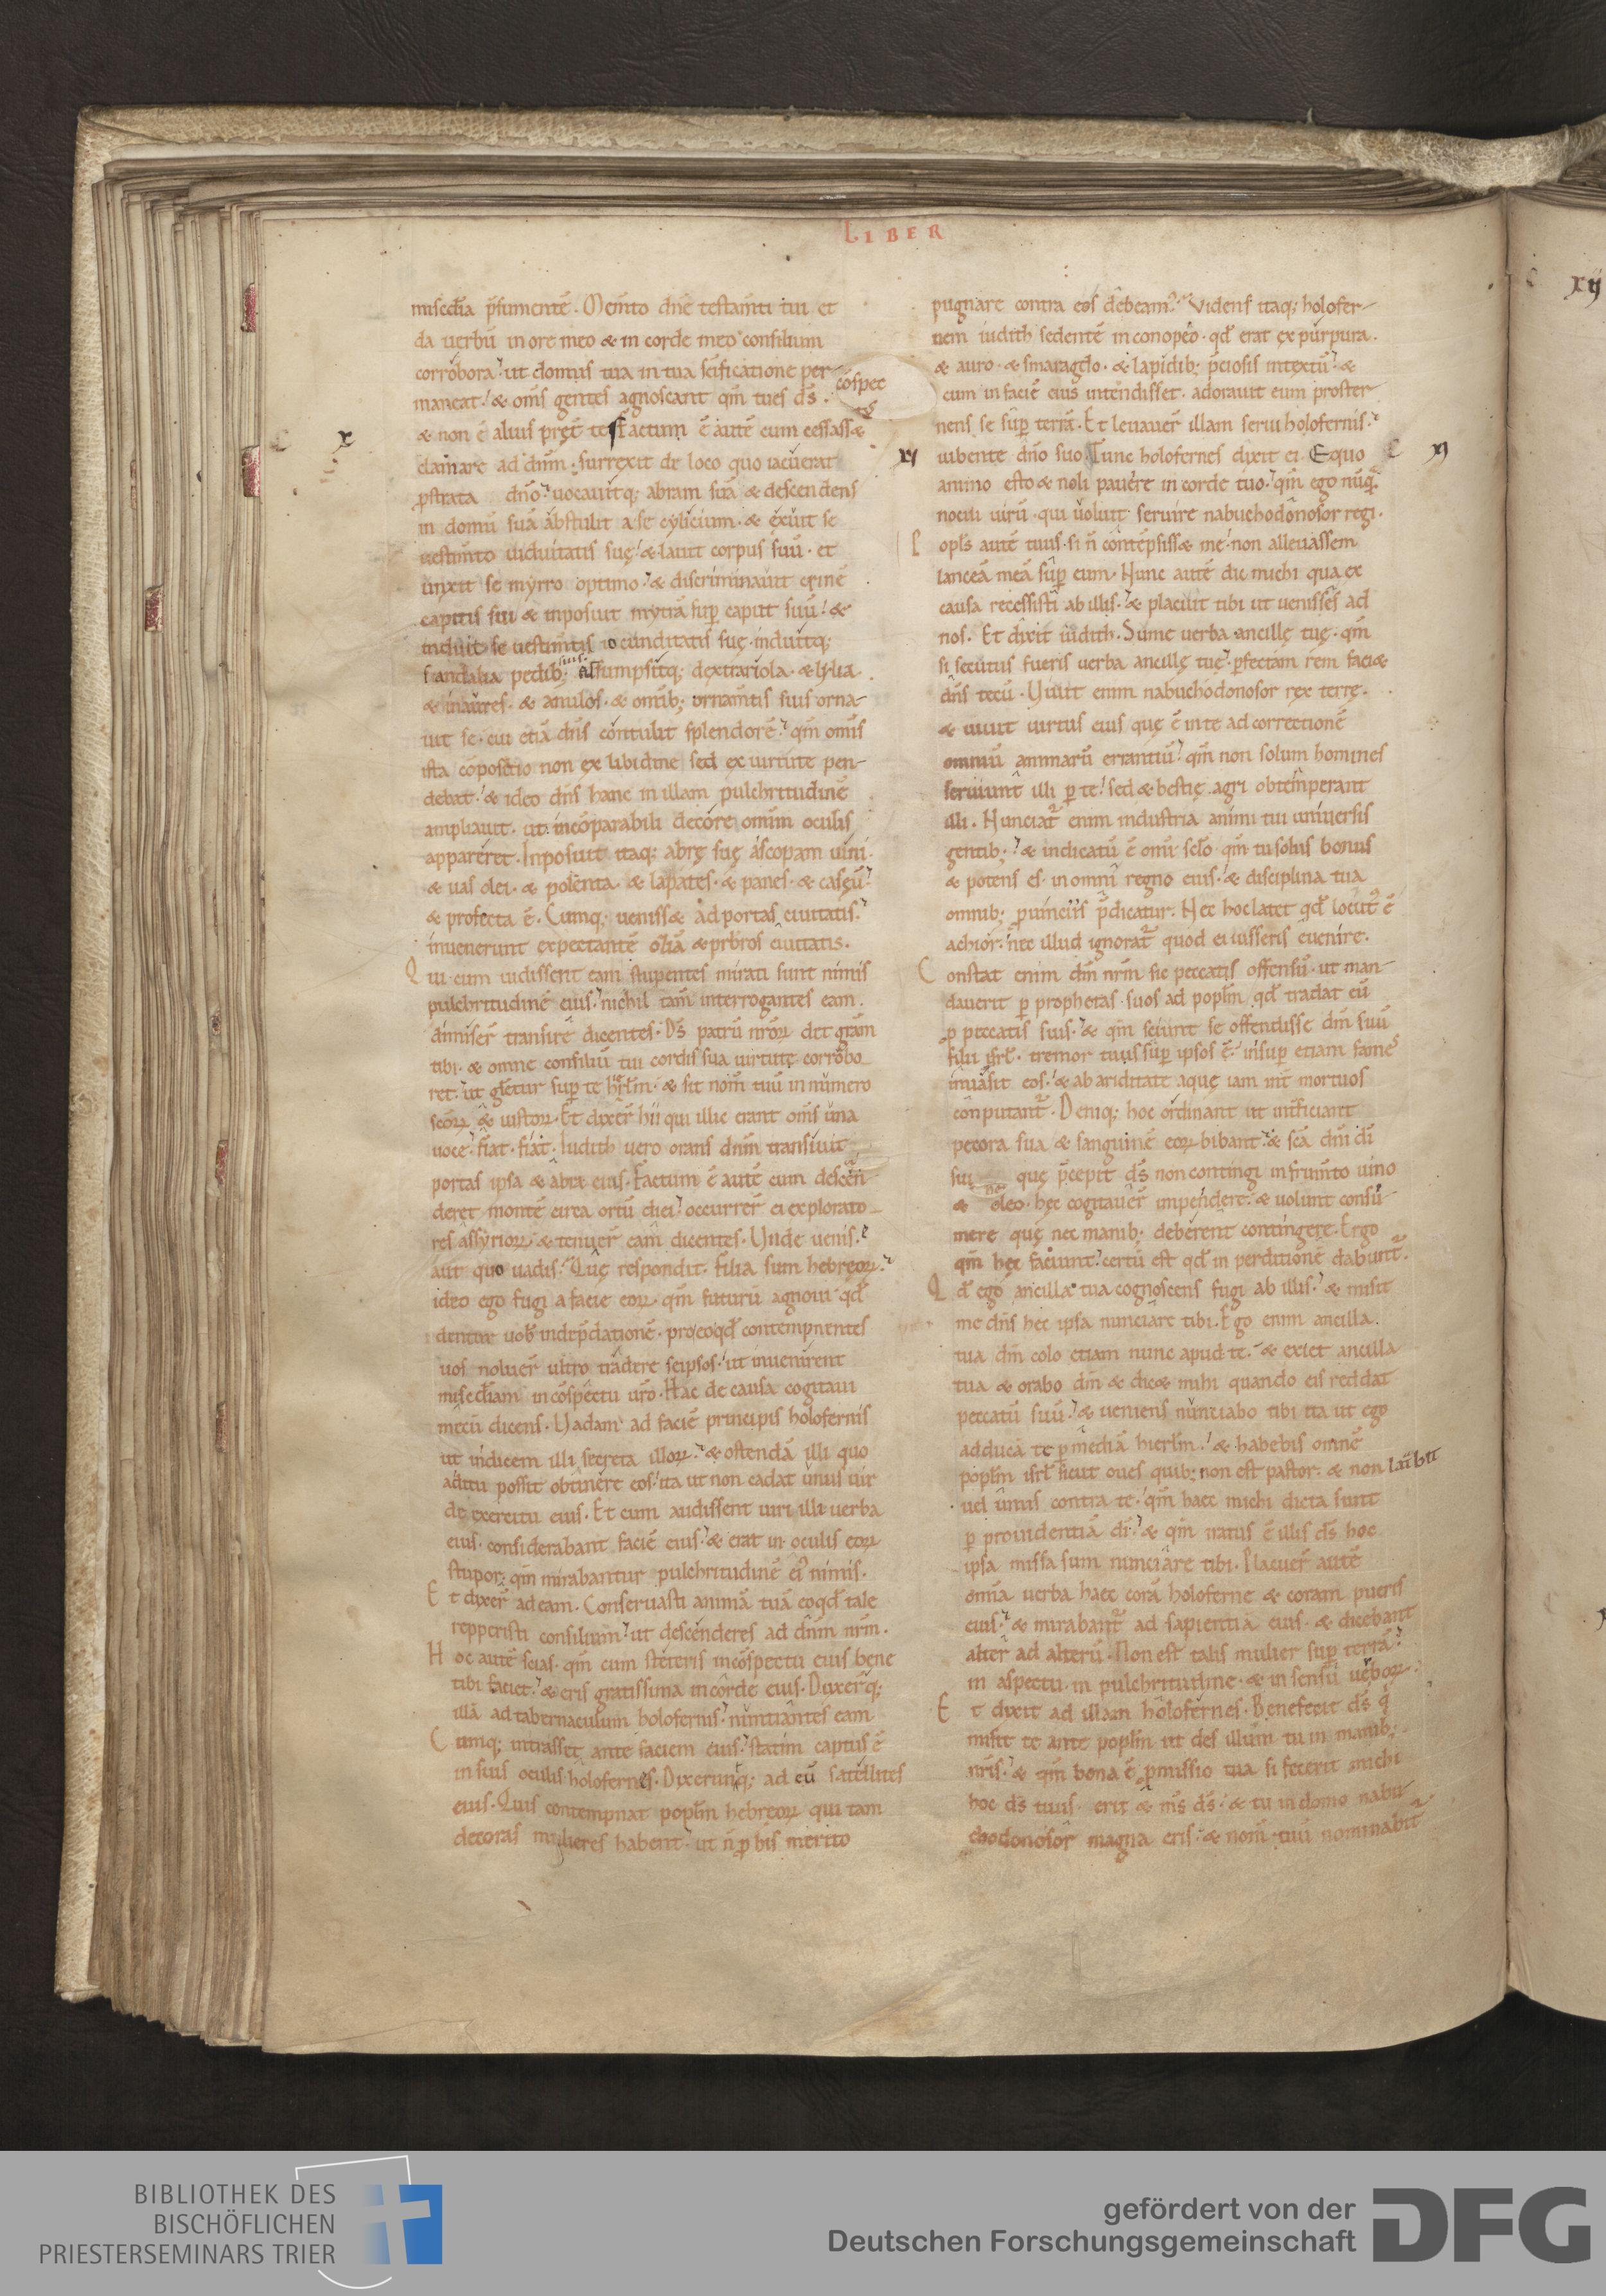 LIBER
misedia p̄sumentē. Mem̄to dn̄e testam̄ti tui et
da uerbū in ore meo & in corde meo consilium
corrobora ut domus tua in tua sc̄ificatione per-
maneat & om̄s gentes agnoscant qm̄ tu es ds̄.
cōspec
x
& non ē alius pręt te Factum ē autē cum cessass&
clamare ad dn̄m. surrexit de loco quo iacuerat
ꝓstrata dn̄o uocauitq; abram suā & descendens
in domū suā abstulit a se cylicium. & exuit se
uestim̄to uiduitatis suę & lauit corpus suū. et
unxit se myrro optimo & discriminauit crinē
capitis sui & inposuit mytrā sup̱ caput suū &
induit se uestim̄tis iocunditatis suę. induitq;
sandalia pedib; suis. assumpsitq; dextrariola. & lylia.
& inaures. & anulos. & omib; ornam̄tis suis orna-
uit se. cui etiā dn̄s contulit splendorē qm̄ om̄s
ista cōpositio non ex libidine sed ex uirtute pen-
debat & ideo dn̄s hanc in illam pulchritudinē
ampliauit. ut incōparabili decore omīum oculis
appareret. Inposuit itaq; abrę suę ascopam uini.
& uas olei. & polenta. & lapates. & panes. & caseū
& profecta ē. Cumq; ueniss& ad portas ciuitatis.
inuenerunt expectantē oziā & prb̄ros ciuitatis.
Qui cum uidissent eam stupentes mirati sunt nimis
pulchritudinē eius. nichil tam̄ interrogantes eam.
dimiser̄ transire dicentes. Ds̄ patrū nr̄oꝝ det grām
tibi. & omne consiliū tui cordis sua uirtute corrobo-
ret. ut gl̄etur sup̱ te hrl̄m. & sit nom̄ tuū in numero
scōꝝ & iustoꝝ. Et dixer̄ hii qui illic erant om̄s una
uoce fiat. fiat. Iudith uero orans dn̄m transiuit
portas ipsa & abra eius. Factum ē autē cum descen-
deret montē circa ortū diei occurrer̄ ei explorato-
res assyrioꝝ. & tenuer̄ eam dicentes. Unde uenis.
aut quo uadis. Quę respondit. filia sum hebręoꝝ.
ideo ego fugi a facie eoꝝ. qm̄ futurū agnoui qd̄
dentur uob̄ in dep̄dationē. pro eo qd̄ contempnentes
uos noluer̄ ultro tradere seipsos. ut inuenirent
misedīam in cōspectu ur̄o. Hac de causa cogitaui
mecū dicens. Uadam ad faciē principis holofernis
ut indicem illi secreta illoꝝ. & ostendā illi quo
aditu possit obtinere eos. ita ut non cadat unus uir
de exercitu eius. Et cum audissent uiri illi uerba
eius. considerabant faciē eius. & erat in oculis eoꝝ
stupor. qm̄ mirabantur pulchritudinē ei nimis.
Et dixer̄ ad eam. Conseruasti animā tuā eo qd̄ tale
repperisti consilium. ut descenderes ad dn̄m nr̄m.
Hoc autē scias. qm̄ cum steteris in cōspectu eius bene
tibi faciet. & eris gratissima in corde eius. Duxer̄q;
illā ad tabernaculum holofernis. nuntiantes eam
Cumq; intrasset ante faciem eius. statim captus ē
in suis oculis holofernes. Dixerunq; ad eū satellites
eius. Quis contempnat popl̄m hebreoꝝ qui tam
decoras mulieres habent. ut n̄ ꝓ his merito
pugnare contra eos debeam. Videns itaq; holofer-
nem iudith sedentē in conopeo. qd̄ erat ex purpura.
& auro. & smaragdo. & lapidib; p̄ciosis intextū &
cum in faciē eius intendisset. adorauit eum proster-
nens se sup̱ terrā. Et leuauer̄ illam serui holofernis.
xi
iubente dn̄o suo Tunc holofernes dixit ei. Equo
xi
animo esto & noli pauere in corde tuo. qm̄ ego nūq̄
nocui uirū. qui uoluit seruire nabuchodonosor regi.
Popl's autē tuus. si n̄ contēpsiss& me. non alleuassem
lanceā meā sup̱ eum. Nunc autē dic michi qua ex
causa recessisti ab illis. & placuit tibi ut uenisses ad
nos. Et dixit iudith. Sume uerba ancillę tuę. qm̄
si secutus fueris uerba ancillę tuę. ꝑfectam rem faci&
dn̄s tecū. Uiuit enim nabuchodonosor rex terrę.
& uiuit uirtus eius quę ē in te ad correctionē
omniū animarū errantiū. qm̄ non solum homines
seruiunt illi ꝑ te. sed & bestię agri obtemperant
illi. Nunciat̄ enim industria animi tui uniuersis
gentib; & indicatū ē omī sc̄lo. qm̄ tu solus bonus
& potens es in omni regno eius. & disciplina tua
omnib; ꝓuinciis p̄dicatur. Nec hoc latet qd̄ locut' ē
achior. nec illud ignorat̄ quod ei iusseris euenire.
Constat enim dm̄ nr̄m sic peccatis offensū. ut man-
dauerit ꝑ prophetas suos ad popl̄m. qd̄ tradat eū
ꝓ peccatis suis. & qm̄ sciunt se offendisse dm̄ suū
filii isrl̄. tremor tuus sup̱ ipsos ē. insup̱ etiam fames
inuasit eos. & ab ariditate aquę iam int̄ mortuos
conputant̄. Deniq; hoc ordinant ut int̄ficiant
pecora sua & sanguinē eoꝝ bibant. & sc̄a dn̄i di
sui quę p̄cepit ds̄ non contingi in frum̄to uino
& oleo. hec cogitauer̄ impendere. & uolunt consu-
mere quę nec manib; deberent contingere. Ergo
qm̄ hec faciunt. certū est qd̄ in perditionē dabunt̄.
Qd̄ ego ancilla tua cognoscens fugi ab illis. & misit
me dn̄s hec ipsa nunciare tibi. Ego enim ancilla.
tua dm̄ colo etiam nunc apud te. & exiet ancilla
tua & orabo dm̄ & dic& mihi quando eis reddat
peccatū suū. & ueniens nunciabo tibi ita ut ego
adducā te ꝑ mediā hierl̄m. & habebis omnē
popl̄m isrl̄ sicut oues quib; non est pastor. & non latrabit
uel unus contra te. qm̄ haec michi dicta sunt
ꝑ prouidentiā di. & qm̄ iratus ē illis ds̄ hoc
ipsa missa sum nunciare tibi. Placuer̄ autē
omīa uerba haec corā holoferne & coram pueris
eius. & mirabant̄ ad sapientiā eius. & dicebant
alter ad alterū. Non est talis mulier sup̱ terrā.
in aspectu. in pulchritudine. & in sensu uerboꝝ.
Et dixit ad illam holofernes. Benefecit ds̄ q̄
misit te ante popl̄m ut des illum tu in manib;
nr̄is. & qm̄ bona ē ꝓmissio tua si fecerit michi
hoc ds̄ tuus. erit & ms̄ ds̄. & tu in domo nabu-
chodonosor magna eris. & nom̄ tuū nominabit̄
xij
BIBLIOTHEK DES
BISCHÖFLICHEN
PRIESTERSEMINARS TRIER
gefördert von der
Deutschen Forschungsgemeinschaft
DFG